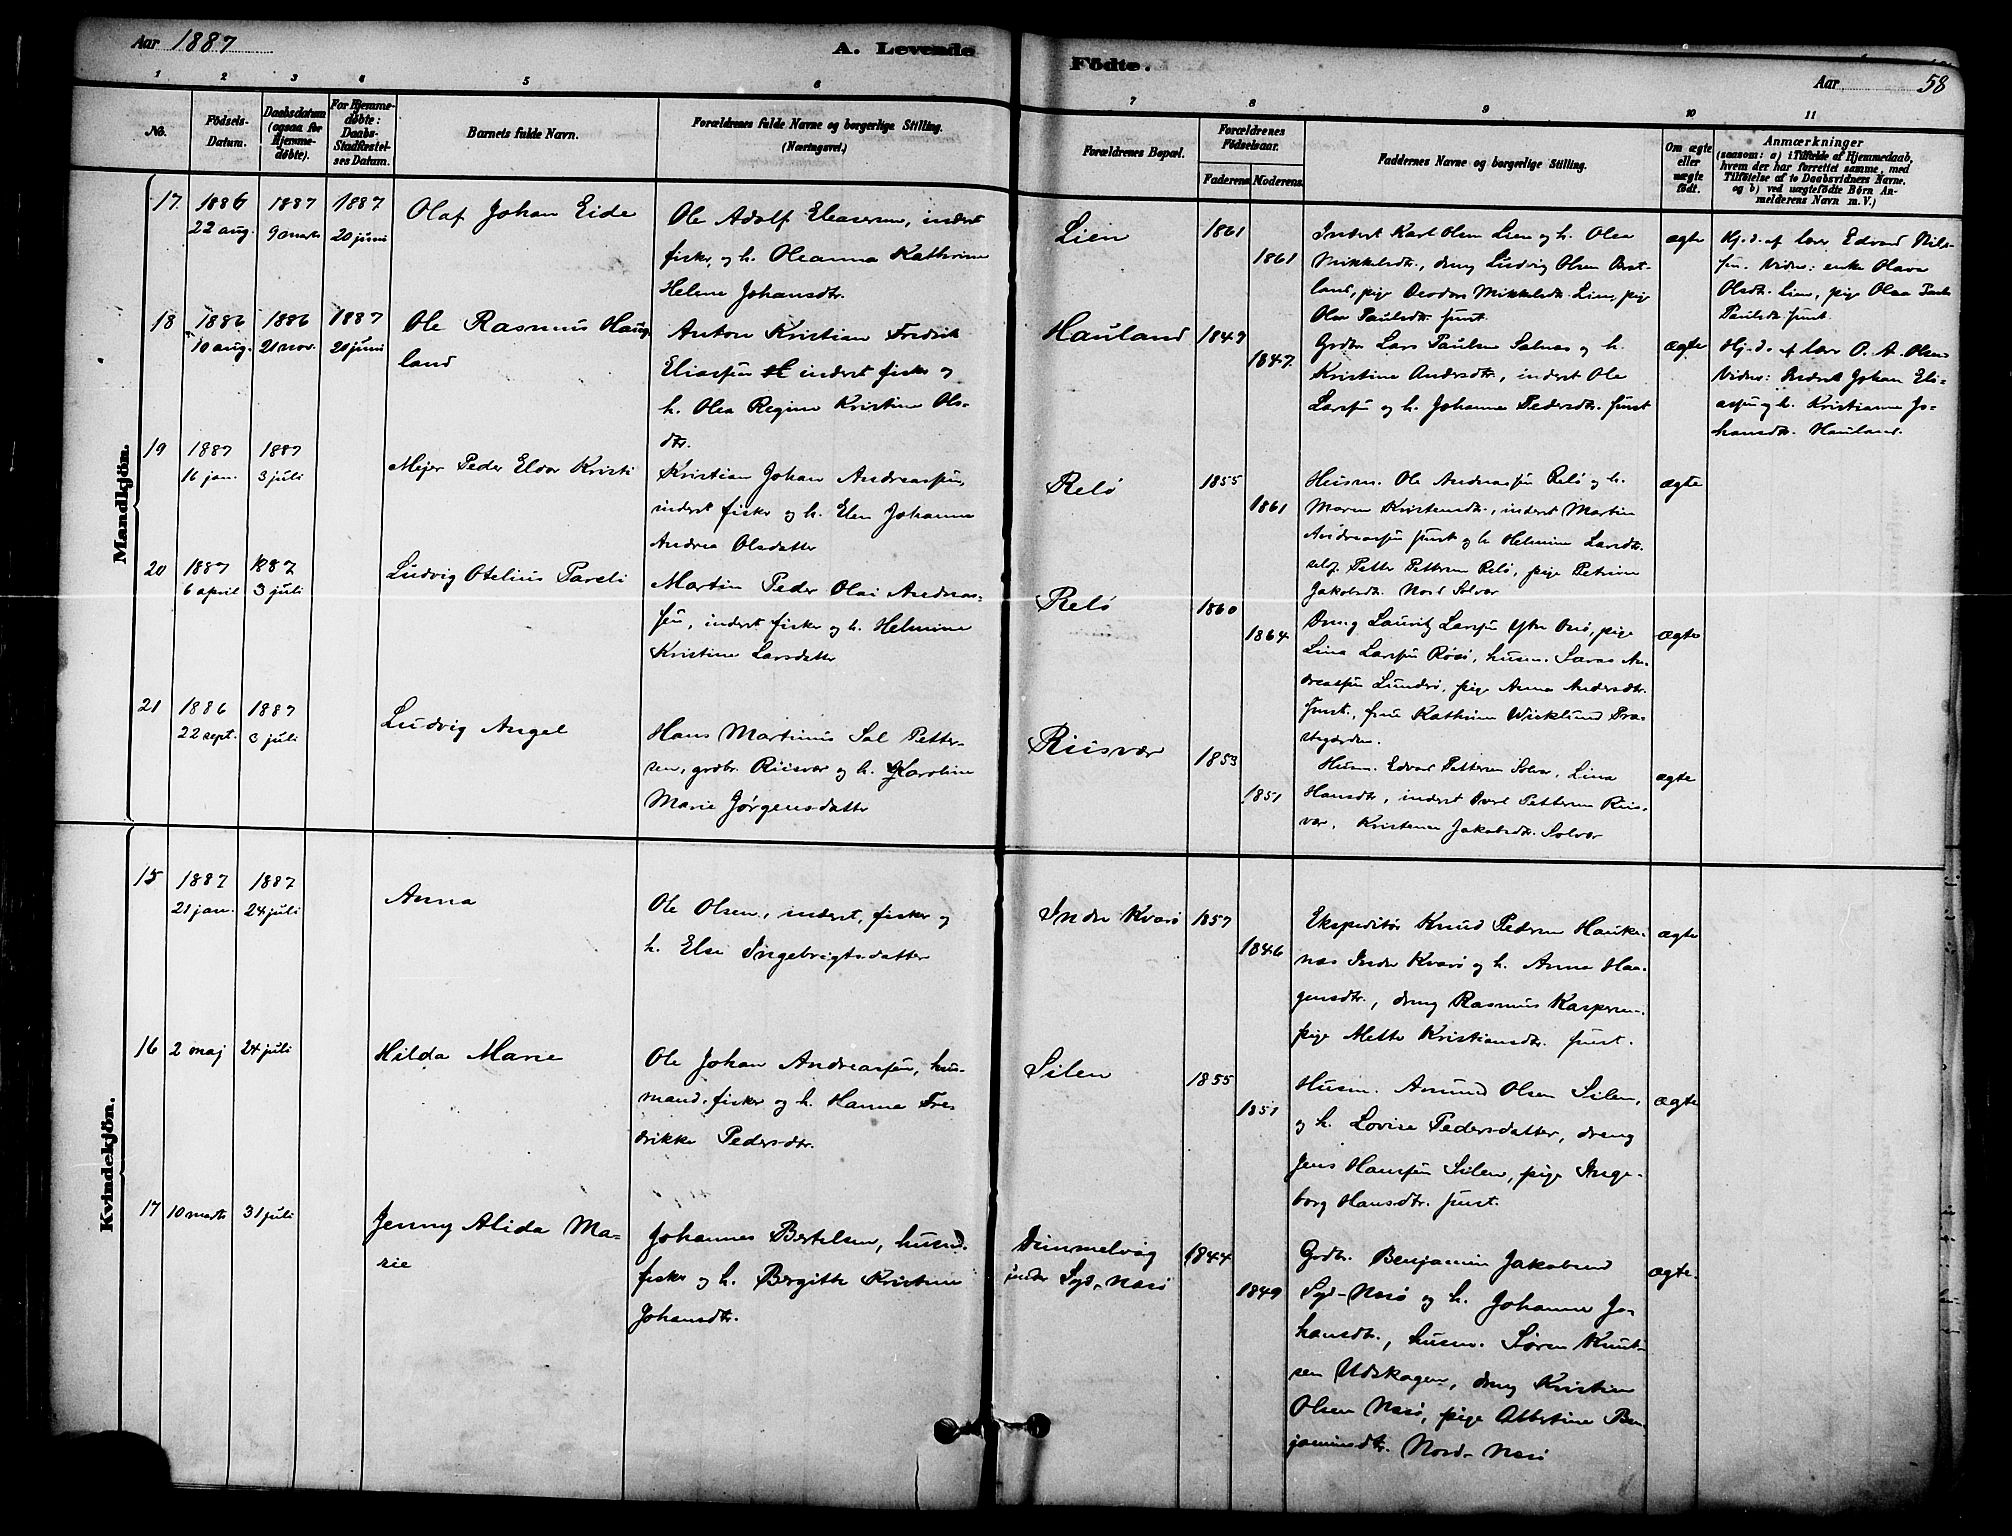 Aar 1887
A. Levende
Födte.
Aar 58
1 2 3 4 5 6 7 8 9 10 11
No.
Födsels-Datum.
Daabsdatum (ogsaa for Hjemme-døbte).
For Hjemme-døbte: Daabs-Stadfæstelses Datum.
Barnets fulde Navn.
Forældrenes fulde Navne og borgerlige Stilling. (Næringsvei.)
Forældrenes Bopæl.
Forældrenes Födselsaar.
Faderens Moderens.
Faddernes Navne og borgerlige Stilling.
Om ægte eller uægte født.
Anmærkninger
(saasom: a) i Tilfælde af Hjemmedaab,
hvem der har forrettet samme, med
Tilföielse af to Daabsvidners Navne,
og b) ved uægtefödte Børn An-
melderens Navn m. V.)
Mandkjön.
17. 1886 22 aug. 1887 9 marts 1887 20 juni
Olaf Johan Eide
Ole Adolf Eleasersen, inderst
fisker, og h. Oleanna Kathrine
Helene Johansdtr.
Lien
1861
1861
Inderst Karl Olsen Lien og h. Olea
Mikkelsdtr., dreng Ludvig Olsen
land, pige Mikkelsdtr. Lien, pige
Olea Paulsdtr.
ægte
Hj. d. af lærer Edvard Nils-
sen. Vidner: enke Olava
Olsdtr. Lien, pige Olea
Paulsdtr.
18 1886 10 aug. 1886 21 nov. 1887 21 juni
Ole Rasmus Haug
land
Anton Kristian Fredrik
Eliassen inderst fisker og
h. Olea Regine Kristine Ols-
dtr.
Hauland
1847
1847.
Lars Paulsen og h.
Kristine Andersdtr., inderst Ole
Larssen og h. Johanna Pedersdtr.
ægte
Hj. d. af lærer O. A. Olsen
Vidner: Inderst Johan Eli-
assen og h. Kristianne Jo-
hansdtr. Hauland.
19 1887 16 jan. 1887 3 juli
Mejer Peder Elvar Kristi
Kristian Johan Andreassen,
inderst fisker og h. Elen Johanna
Andrea Olsdatter
Relø
1855
1861
Husm. Ole Andreassen Relø og h.
Maren Kristensdtr., inderst Martin
Andreassen og h Helmine Larsdtr.
Petter Pettersen Relø, pige Petrine
Jakobsdtr. Nord Solvær
ægte
20 1887 6 april 1887 3 juli
Ludvig Otelius Pareli
Martin Peder Olai Andreas-
sen, inderst fisker og h. Helmine
Kristine Larsdatter
Relø
1860
1864
Dreng Lauritz Larssen, pige
Lina Larssen, husm. Andreassen Lunderø, pige Anna Andersdtr.
frue Kathrine Wicklund Præ-
stegården.
ægte
21 1886 22 sept. 1887 3 juli
Ludvig Angel
Hans Martinus Sal Petter-
sen, grdbr. Riisvær og h. Karoline
Marie Jørgensdatter
Riisvær
1853
1851
Husm. Edvard Pettersen Solvær, Lina
Hansdtr., inderst Pettersen Riis-
vær, Jakobsdtr. Solvær
ægte
Kvindekjön.
15 1887 21 jan. 1887 24 juli
Anna
Ole Olsen, inderst, fisker og
h. Else Ingebrigtsdatter
Indre Kvarø
1857
1846
Ekspeditør Knud Pedersen Hauke-
næs Indre Kvarø og h. Anna Haa-
gensdtr., dreng Rasmus Kaspersen.
pige Mette Kristiansdtr.
ægte
16 2 maj 24 juli
Hilda Marie
Ole Johan Andreassen, hus-
mand, fisker og h. Hanna Fre
drikke Pedersdtr.
Silen
1855
1851
Husm. Amund Olsen Silen,
og h. Lovise Pedersdatter, dreng
Jens Hanssen Silen, pige Inge-
borg Hansdtr.
ægte
17 10 marts 31 juli
Jenny Alida Ma-
rie
Johannes Bertelsen, husm.
fisker og h. Bergitte Kristine
Johansdtr.
under Syd-Nesø
1844
1849
Grdbr. Benjamin Jakobsen
Syd-Nesø og h. Johanna Jo-
hansdtr., husm. Søren Knut-
sen Udskogen, dreng Kristian
Olsen Nesø, pige Albertine Ben-
jaminsdtr. Nord-Nesø
ægte.